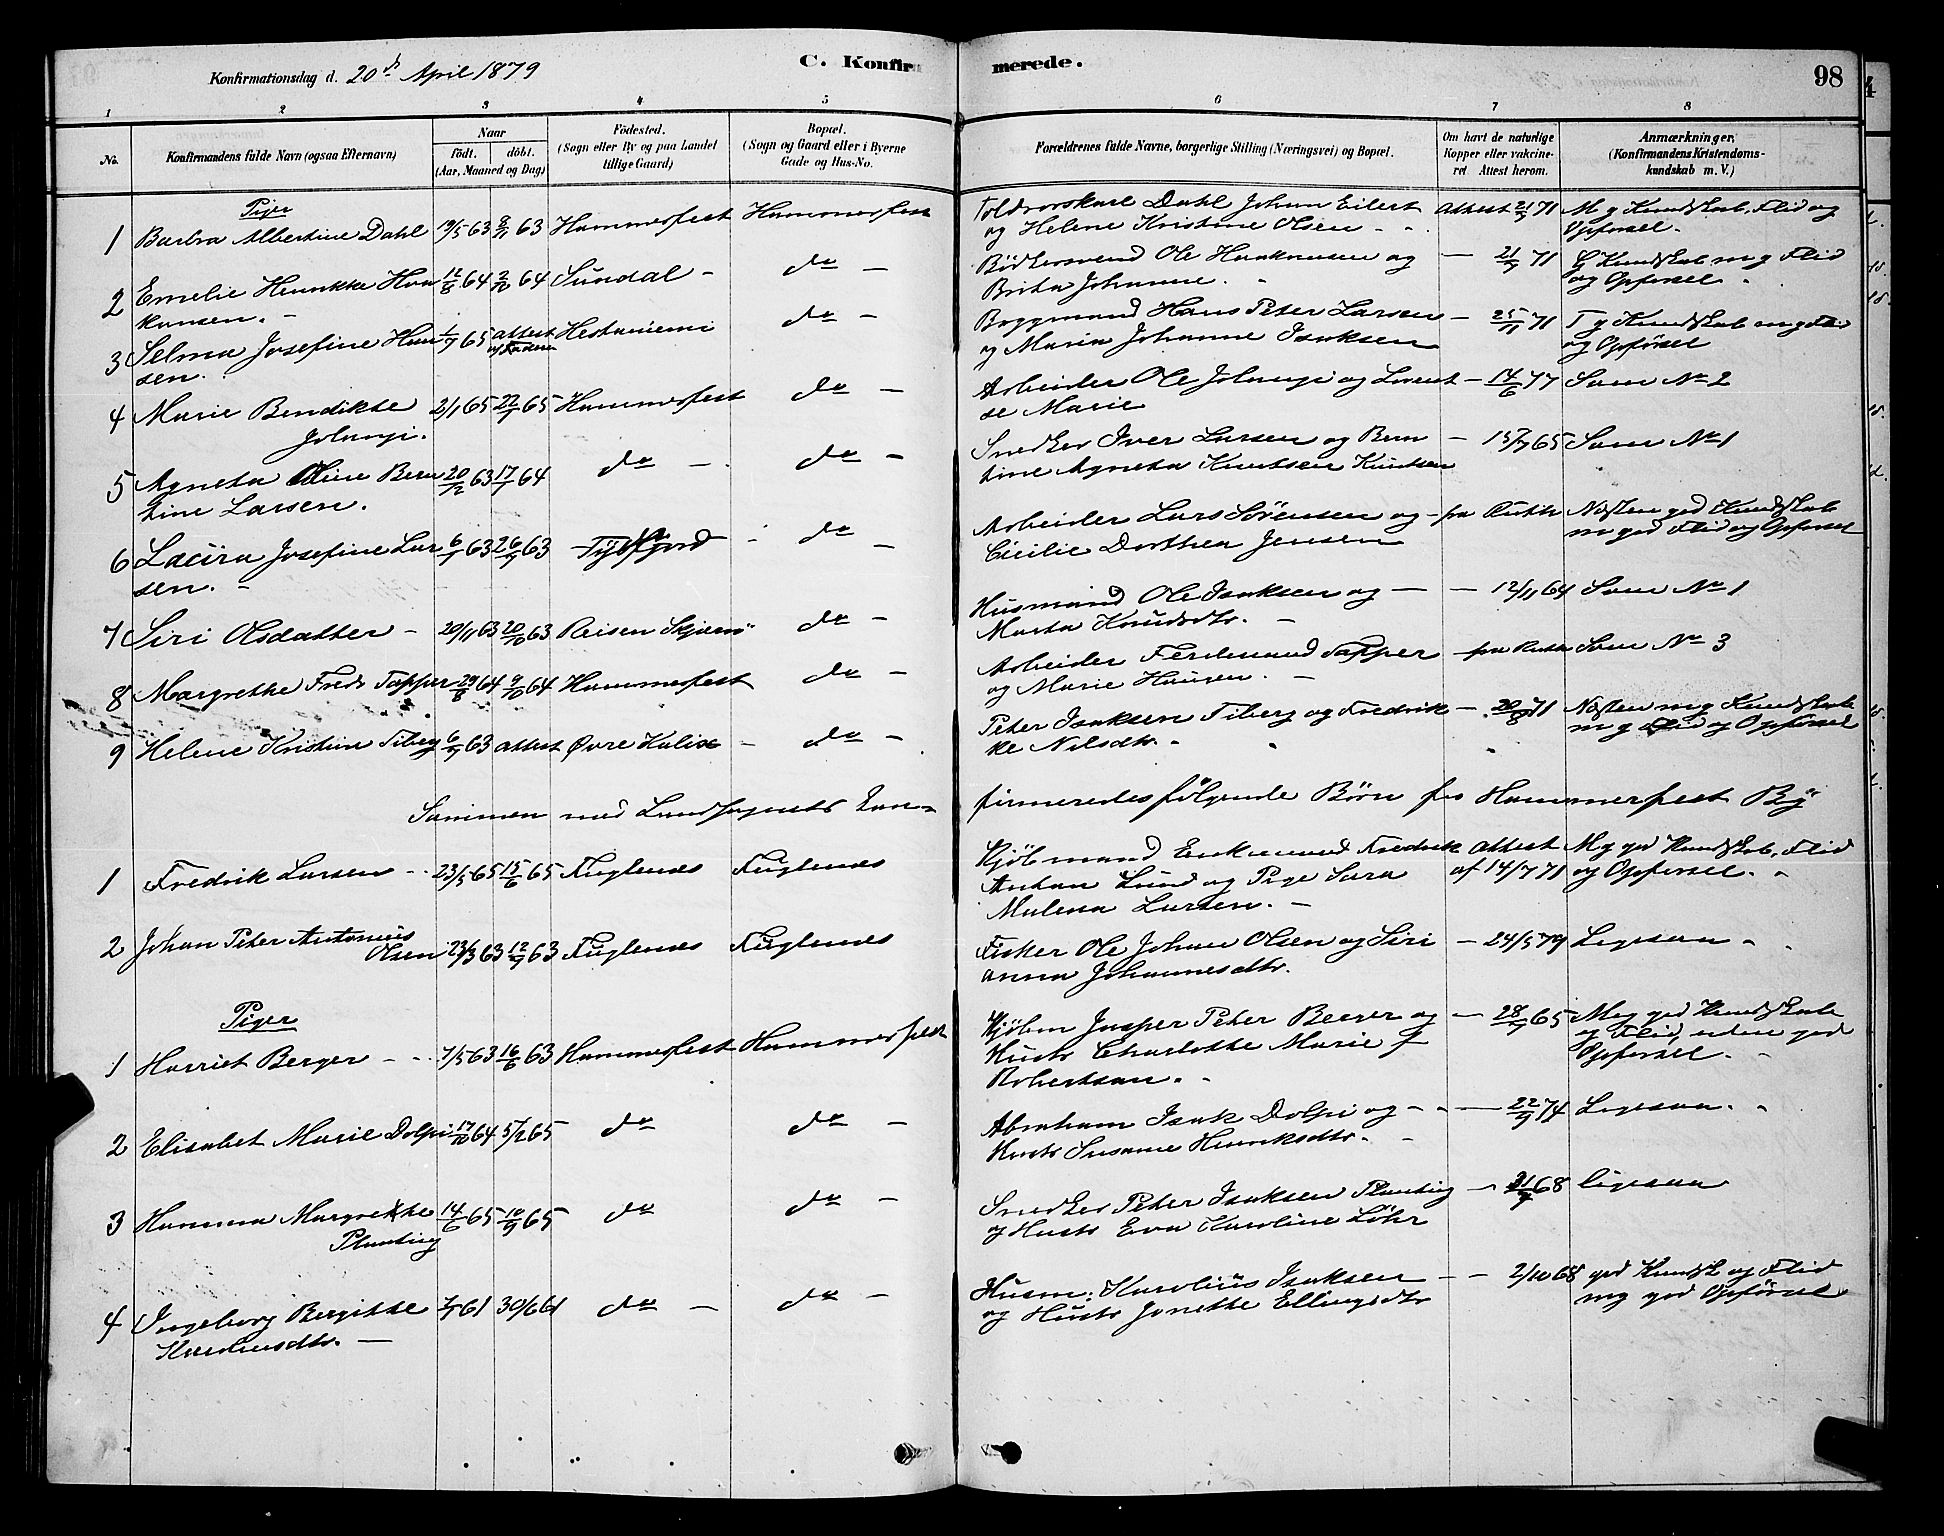 Konfirmationsdag d. 20de April 1879
C. Konfirmerede.
98
1 2 3 4 5 6 7 8
No.
Konfirmandens fulde Navn (ogsaa Efternavn)
Naar
födt. döbt.
(Aar, Maaned og Dag)
Födested.
(Sogn eller By og paa Landet
tillige Gaard)
Bopæl.
(Sogn og Gaard eller i Byerne
Gade og Hus-No.
Forældrenes fulde Navne, borgerlige Stilling (Næringsvei) og Bopæl.
Om havt de naturlige
Kopper eller vakcine-
ret Attest herom.
Anmærkninger,
(Konfirmandens Kristendoms-
kundskab m. V.)
Piger
1 Barbra Albertine Dahl 19/5 63 8/11 63 Hammerfest Hammerfest Toldroerskarl Dahl Johan Eilert Attest 21/9 71 M g Kundskab, Flid og
og Helene Kristine Olsen - Opførsel.
2 Emelie Henrikke Haa 12/8 64 2/12 64 Sundal - do - Bødkersvend Ole Haakonsen og - 21/9 71 G Kundskab m g Flid
konsen. - Brita Johanne. og Opførsel
3 Selma Josefine Han 1/7 65 attest Hestaniemi do - Byggmand Hans Peter Larsen - 25/11 71 T g Kundskab m g Flid
sen. og Maria Johanne Isaksen og Opførsel
4 Marie Bendikte 2/1 65 22/1 65 Hammerfest do - Arbeider Ole Jolangi og Lorent - 14/6 77 Som No 2
Jolangi. se Marie
5 Agneta Oline Bern 20/12 63 17/1 64 do - do - Snedker Iver Larsen og Bern - 15/7 65 Som No 1
tine Larsen. tine Agneta Knutsen Knutsen
6 Laura Josefine Lar 6/1 63 26/7 63 do - Arbeider Lars Sørensen og - Næsten god Kundskab
sen. - Cicilie Dorthea Jensen m god Flid og Opførsel
7 Siri Olsdatter - 20/11 63 20/10 63 Reisen Skjærvø do - Husmand Ole Isaksen og - - 12/11 64 Som No 1
Marta Knudsdtr. -
8 Margrethe Freds Tapper 29/8 64 9/10 64 Hammerfest do - Arbeider Ferdinand Tapper Som No 3
og Marie Hansen. -
9 Helene Kristine Tiberg 6/7 63 attest Øvre Kalix - do - Peter Isaksen Tiberg og Fredrik - 20/8 71 Næsten m g Kundskab
ke Nilsdtr. - m g Flid og Opførsel
Sammen med Landsognets kon- firmeredes følgende Børn fra Hammerfest By
1 Fredrik Larsen - 23/5 65 15/6 65 Fuglenes Fuglenes Kjøbmand Enkemand Fredrik Attest M g god Kundskab, Flid
Anton Lund og Pige Sara af 14/7 71 og Opførsel.
Malena Larsen. -
2 Johan Peter Antonius 23/3 63 12/7 63 Fuglenes Fuglenes Fisker Ole Johan Olsen og Siri - 24/5 79 Ligesaa
Olsen Anna Johannesdtr.
Piger
1 Harriet Berger - 7/5 63 16/6 63 Hammerfest Hammerfest Kjøbm Jasper Peter Berger og - 28/7 65 Meg god Kundskab
Hustr Charlotte Marie f og Flid, uden god
Robertson. - Opførsel.
2 Elisabet Marie Dolpi 17/12 64 5/2 65 do do - Abraham Isak Dolpi og - - 22/9 74 Ligesaa.
Hustr Susanne Henriksdtr.
3 Hanna Margrethe 14/6 65 10/9 65 do do - Snedker Peter Isaksen Planting - 21/7 68 ligesaa
Planting og Hustr Eva Karoline Løhr
4 Ingeborg Bergitte 61 30/6 61 do - do - Husm. Karolius Isaksen - - 2/10 68 god Kundsk og Flid
Karoliusdtr. - og Hustr Jonette Ellingsdtr meg god Opførsel.